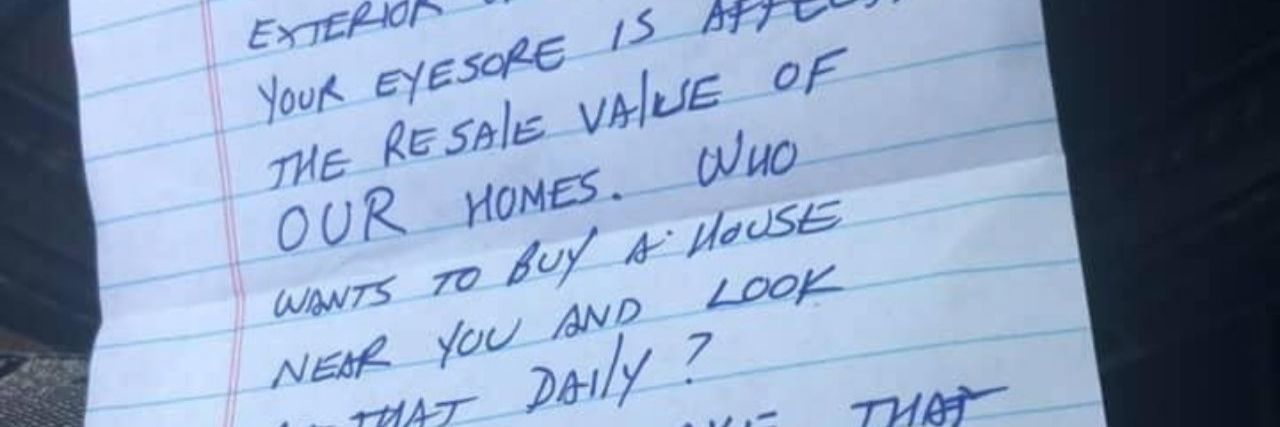 EXTERIOR
YOUR EYESORE IS
THE RESALE VALUE OF
OUR HOMES. WHO
WANTS TO BUY A HOUSE
NEAR YOU AND LOOK
THAT DAILY?
THAT